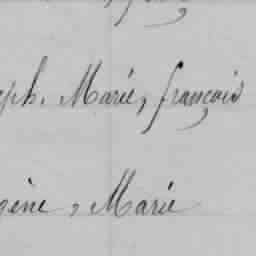 eph, Marie, françois
gène, Marie